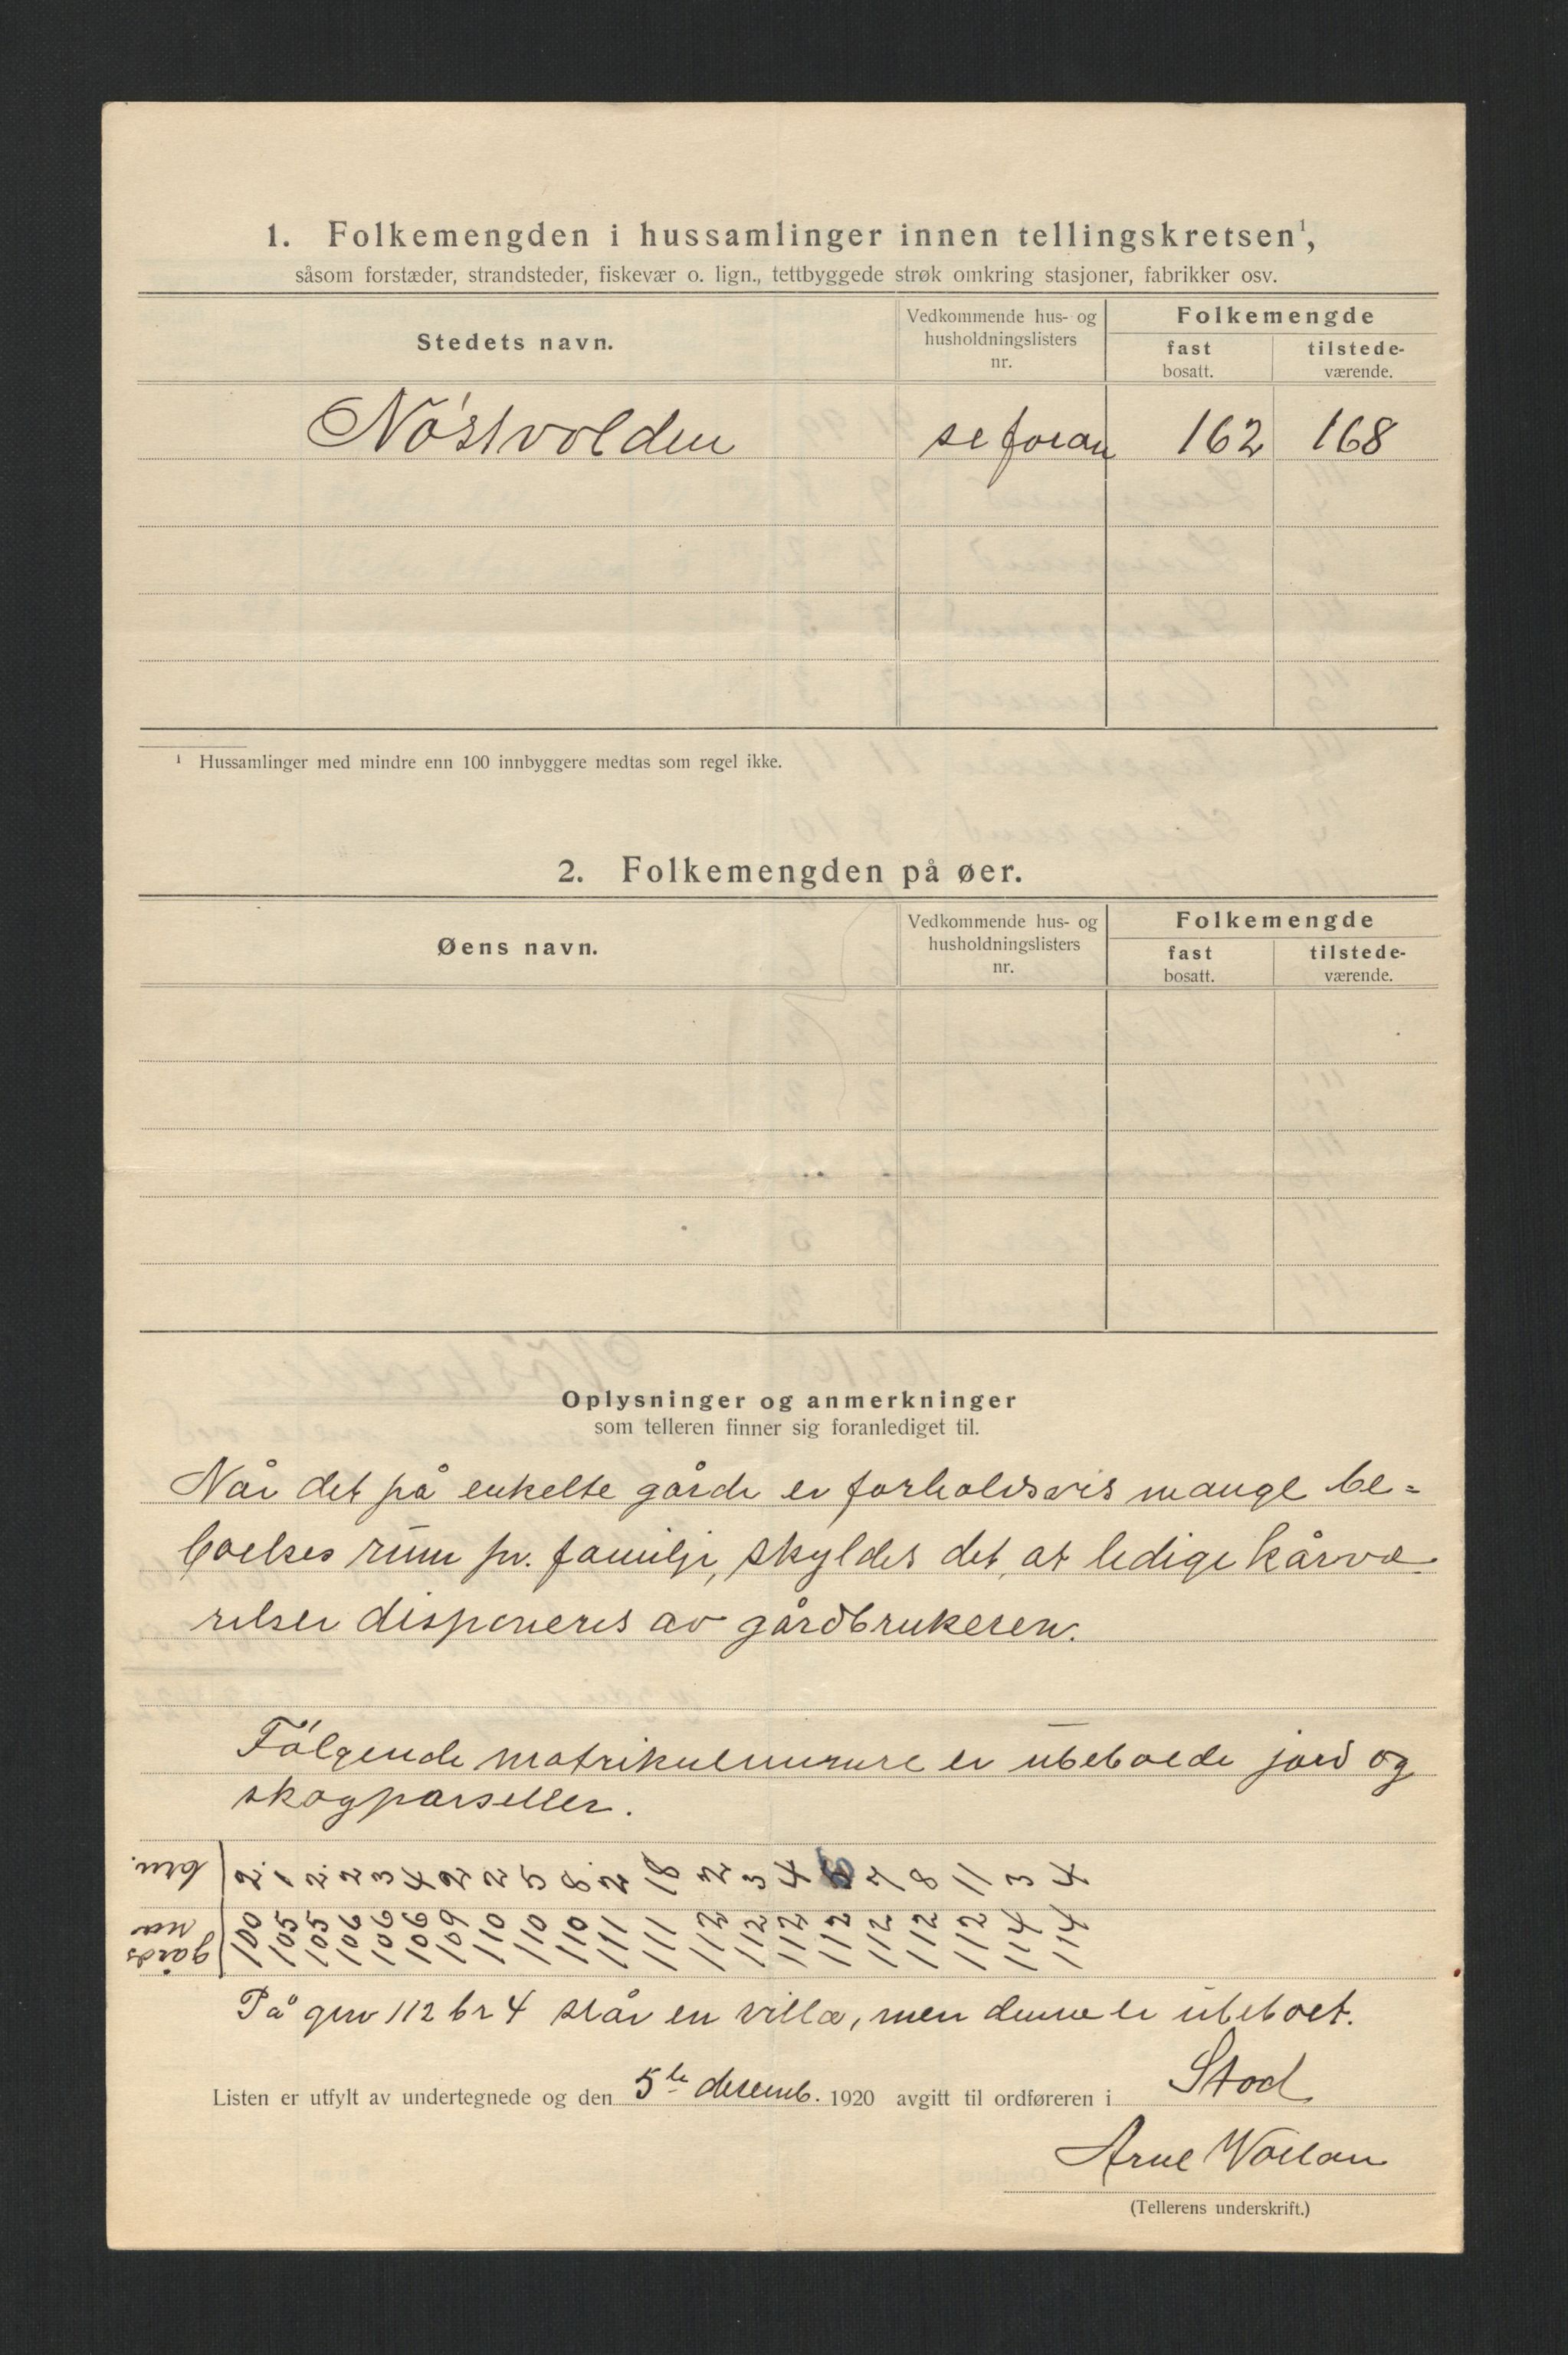 1. Folkemengden i hussamlinger innen tellingskretsen¹,
såsom forstæder, strandsteder, fiskevær o. lign., tettbyggede strøk omkring stasjoner, fabrikker osv.
Stedets navn.
Vedkommende hus- og
husholdningslisters
nr.
Folkemengde
fast
bosatt.
tilstede-
værende.
Nóstvolden se foran 162 168
¹ Hussamlinger med mindre enn 100 innbyggere medtas som regel ikke.
2. Folkemengden på øer.
Øens navn.
Vedkommende hus- og
husholdningslisters
nr.
Folkemengde
fast
bosatt.
tilstede-
værende.
Oplysninger og anmerkninger
som telleren finner sig foranlediget til.
Når det på enkelte gårde er forholdsvis mange be-
boelses rum pr. familje, skyldes det, at ledige kårvæ
relser disponeres av gårdbrukeren.
Fólgende matrikulnumre er ubeboede jord og
skogparseller.
brn. 2 1 2 2 3 4 2 2 5 8 2 18 2 3 4 7 8 11 3 4
gårds
no 100 105 105 106 106 106 109 110 110 110 111 111 112 112 112 112 112 112 112 114 114
På grn 112 br 4 står en villa, men denne er ubeboet.
Listen er utfylt av undertegnede og den 5te desemb. 1920 avgitt til ordføreren i Stod
Arne Wollan
(Tellerens underskrift.)